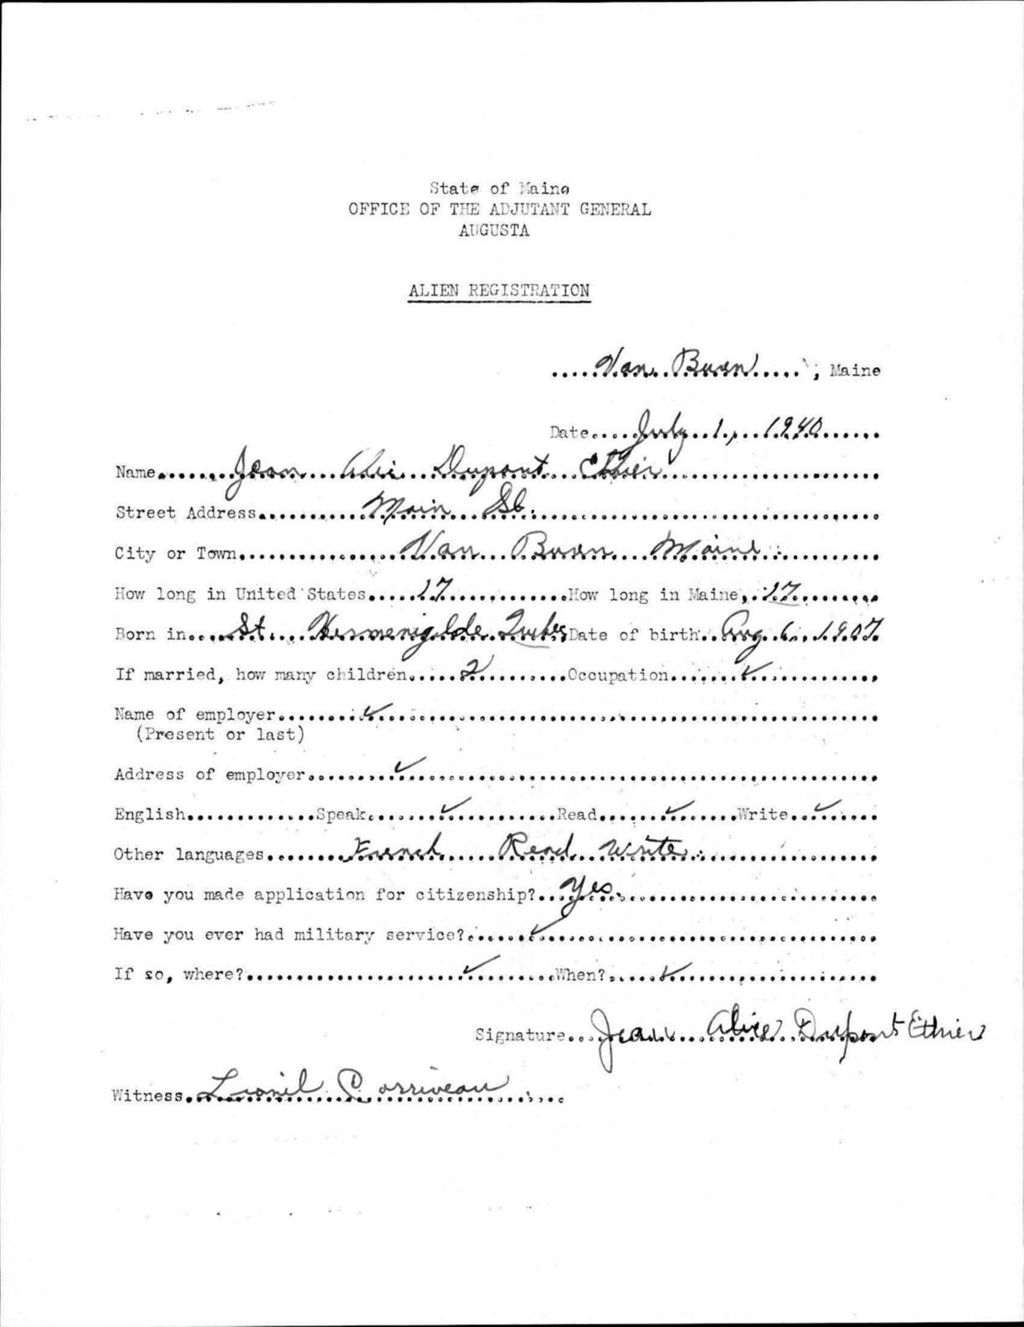 State of Maine
OFFICE OF THE ADJUTANT GENERAL
AUGUSTA
ALIEN REGISTRATION
.....Van Buren....., Maine
Date.....July 1, 1940......
Name.......Jean Alic Dupont Ethier................
Street Address..........Main St...................
City or Town..............Van Buren Maine..........
How long in United States.....17...........How long in Maine..17.......
Born in...St. Hermenigilde Quebec Date of birth..Aug. 6. 1907.
If married, how many children.....2..........Occupation.......✓............
Name of employer........✓..............................
(Present or last)
Address of employer........✓..............................
English.............Speak.......✓...........Read.......✓......Write..✓.....
Other languages.......French Read Write................
Have you made application for citizenship?...Yes.......................
Have you ever had military service?.......✓..............................
If so, where?....................✓........When?.....✓..................
Signature...Jean Alice Dupont Ethier
Witness..Lionil Corriveau......